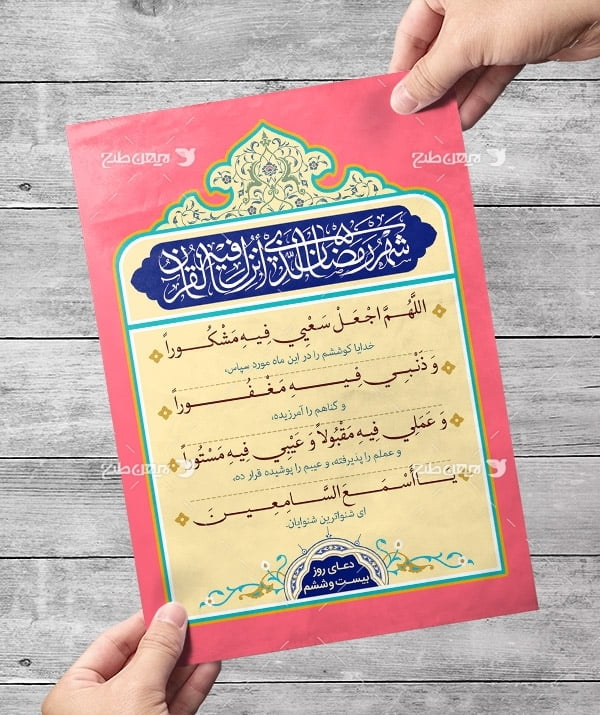 شَهْرُ رَمَضَانَ الَّذِي أُنْزِلَ فِيهِ الْقُرْآنُ
اللَّهُمَّ اجْعَلْ سَعْيِي فِيهِ مَشْكُوراً
خدایا کوششم را در این ماه مورد سپاس،
وَ ذَنْبِي فِيهِ مَغْفُوراً
و گناهم را آمرزیده،
وَ عَمَلِي فِيهِ مَقْبُولاً وَ عَيْبِي فِيهِ مَسْتُوراً
و عملم را پذیرفته، و عیبم را پوشیده قرار ده،
يَا أَسْمَعَ السَّامِعِينَ
ای شنواترین شنوایان.
دعای روز
بیست و ششم
میهن طرح
میهن طرح
میهن طرح
میهن طرح